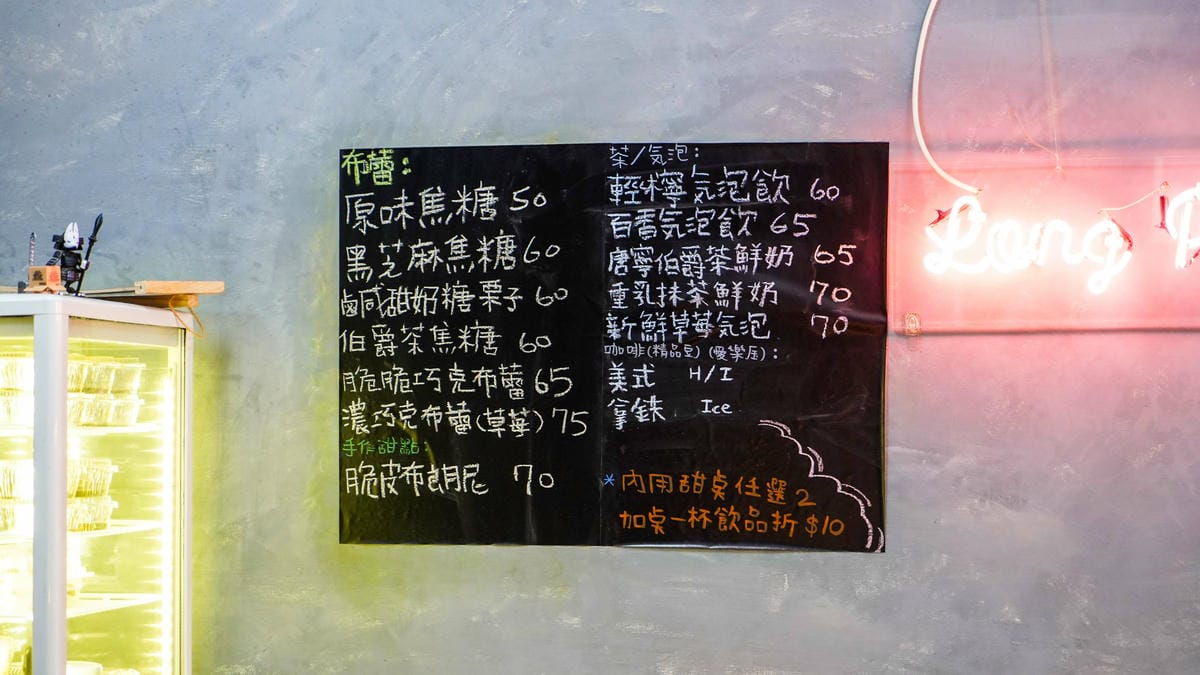 布蕾:
原味焦糖 50
黑芝麻焦糖 60
鹹甜奶糖栗子 60
伯爵茶焦糖 60
脆脆巧克布蕾 65
濃巧克布蕾(草莓) 75
手作甜點:
脆皮布朗尼 70
茶/気泡:
輕檸気泡飲 60
百香気泡飲 65
唐寧伯爵茶鮮奶 65
重乳抹茶鮮奶 70
新鮮草莓気泡 70
咖啡(精品豆)(愛樂压):
美式 H/I
拿鉄 Ice
*內用甜点任選2
加点一杯飲品折$10
Long